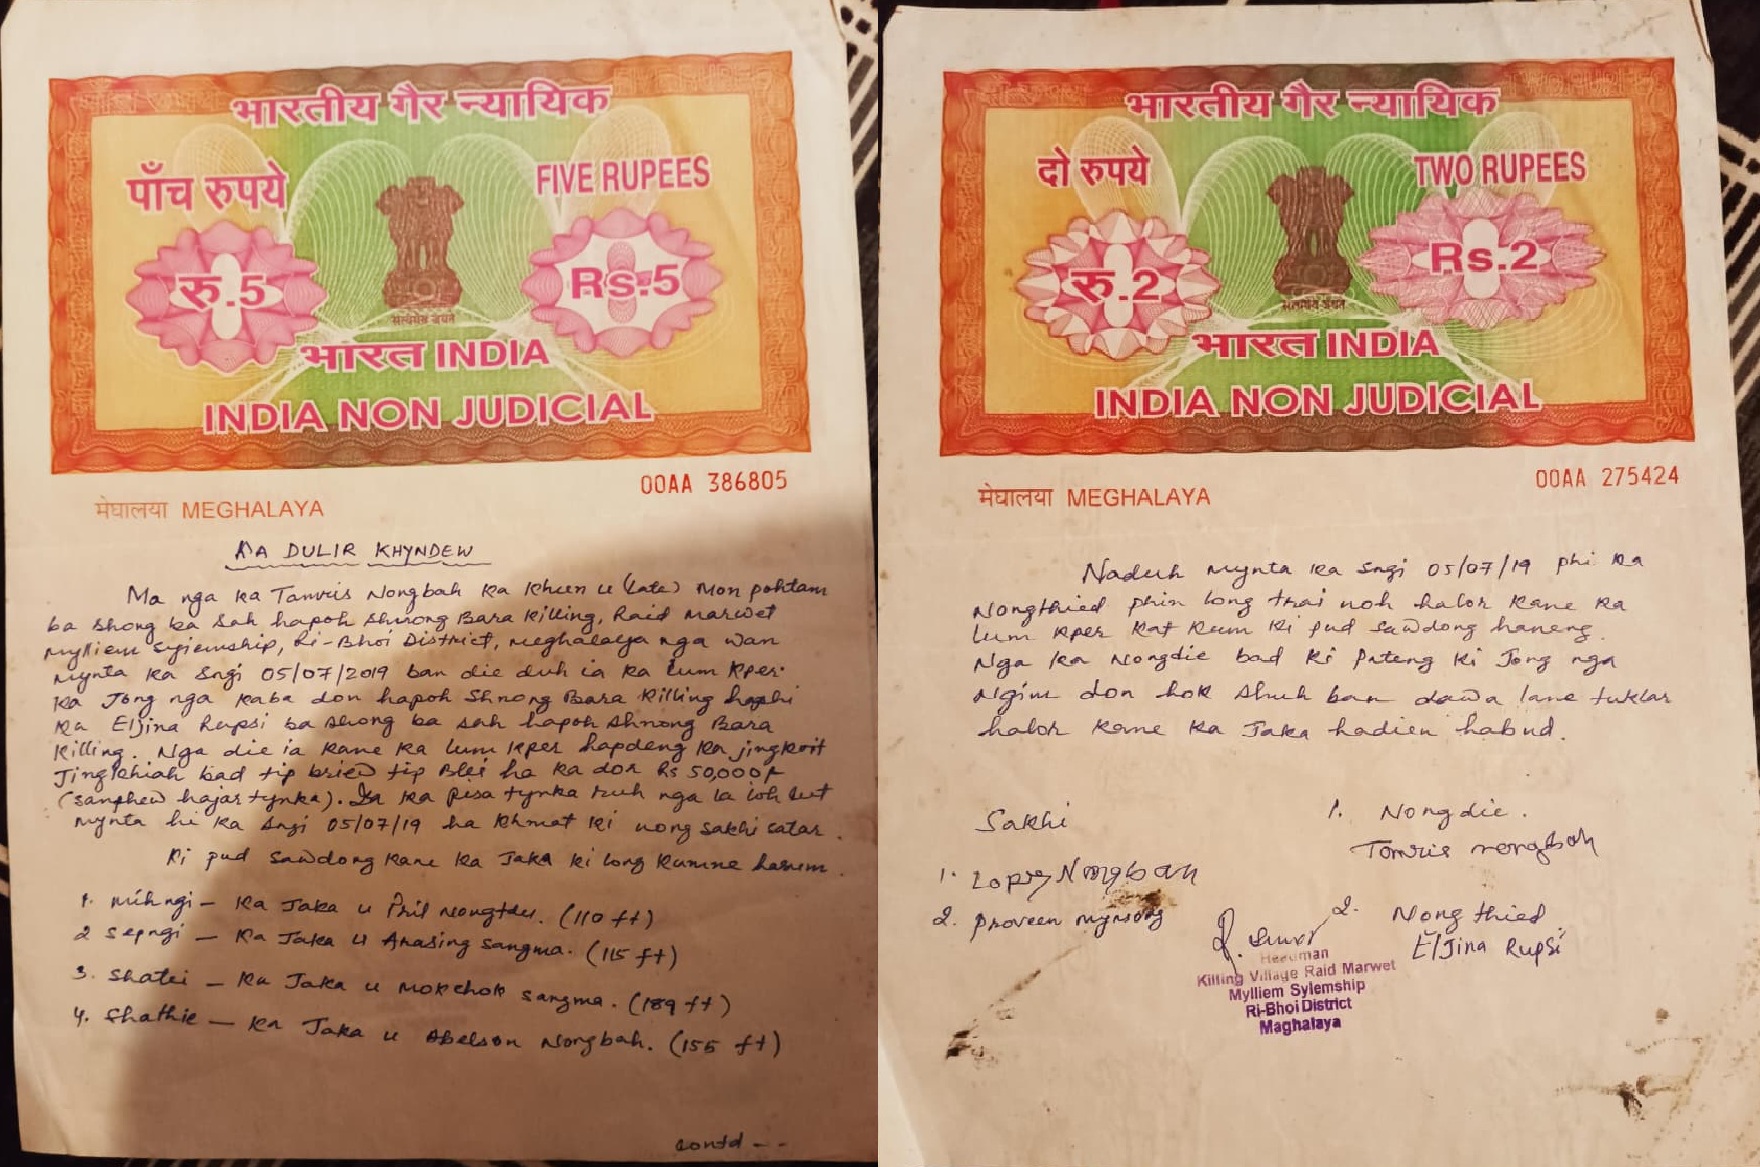 भारतीय गैर न्यायिक
पाँच रुपये
FIVE RUPEES
रु.5
Rs.5
सत्यमेव जयते
भारत INDIA
INDIA NON JUDICIAL
मेघालया MEGHALAYA
00AA 386805
KA DULIR KHYNDEW
Ma nga ka Tamris Nongbah ka khun u (Late) Mon pohtam
ba shong ba sah hapoh Shnong Bara Killing, Raid Marwet
Mylliem Syiemship, Ri-Bhoi District, Meghalaya nga wan
mynta ka Sngi 05/07/2019 ban die duh ia ka lum kper
ka Jong nga kaba don hapoh Shnong Bara Killing haphi
ka Eljina Rupsi ba shong ba sah hapoh Shnong Bara
Killing. Nga die ia kane ka lum kper hapdeng ka jingkoit
Jingkhiah bad tip briew tip Blei ha ka dor Rs 50,000/-
(sanphew hajar tynka). Ia ka pisa tynka ruh nga la ioh lut
mynta hi ka Sngi 05/07/19 ha khmat ki nong sakhi satar.
Ki pud sawdong kane ka Jaka ki long kumne harum.
1. mihngi - ka Jaka u Pril Nongtdu. (110 ft)
2 sepngi - ka Jaka u Anasing sangma. (115 ft)
3. shatei - ka Jaka u Mokchok sangma. (189 ft)
4. Shathie - ka Jaka u Abelson Nongbah. (155 ft)
contd --
भारतीय गैर न्यायिक
दो रुपये
TWO RUPEES
रु.2
Rs.2
सत्यमेव जयते
भारत INDIA
INDIA NON JUDICIAL
मेघालया MEGHALAYA
00AA 275424
Naduh mynta ka Sngi 05/07/19 phi ka
Nongthied phin long trai noh halor kane ka
lum kper kat kum ki pud sawdong haneng.
Nga ka Nongdie bad ki pateng ki Jong nga
Ngim don hok shuh ban dawa lane tuklar
halor kane ka Jaka hadien habud.
Sakhi
1. Nongdie.
Tomris nongbah
1. Lopsy Nongbah
2. Proveen mynsong
2. Nongthied
Eljina Rupsi
Headman
Killing Village Raid Marwet
Mylliem Sylemship
Ri-Bhoi District
Maghalaya